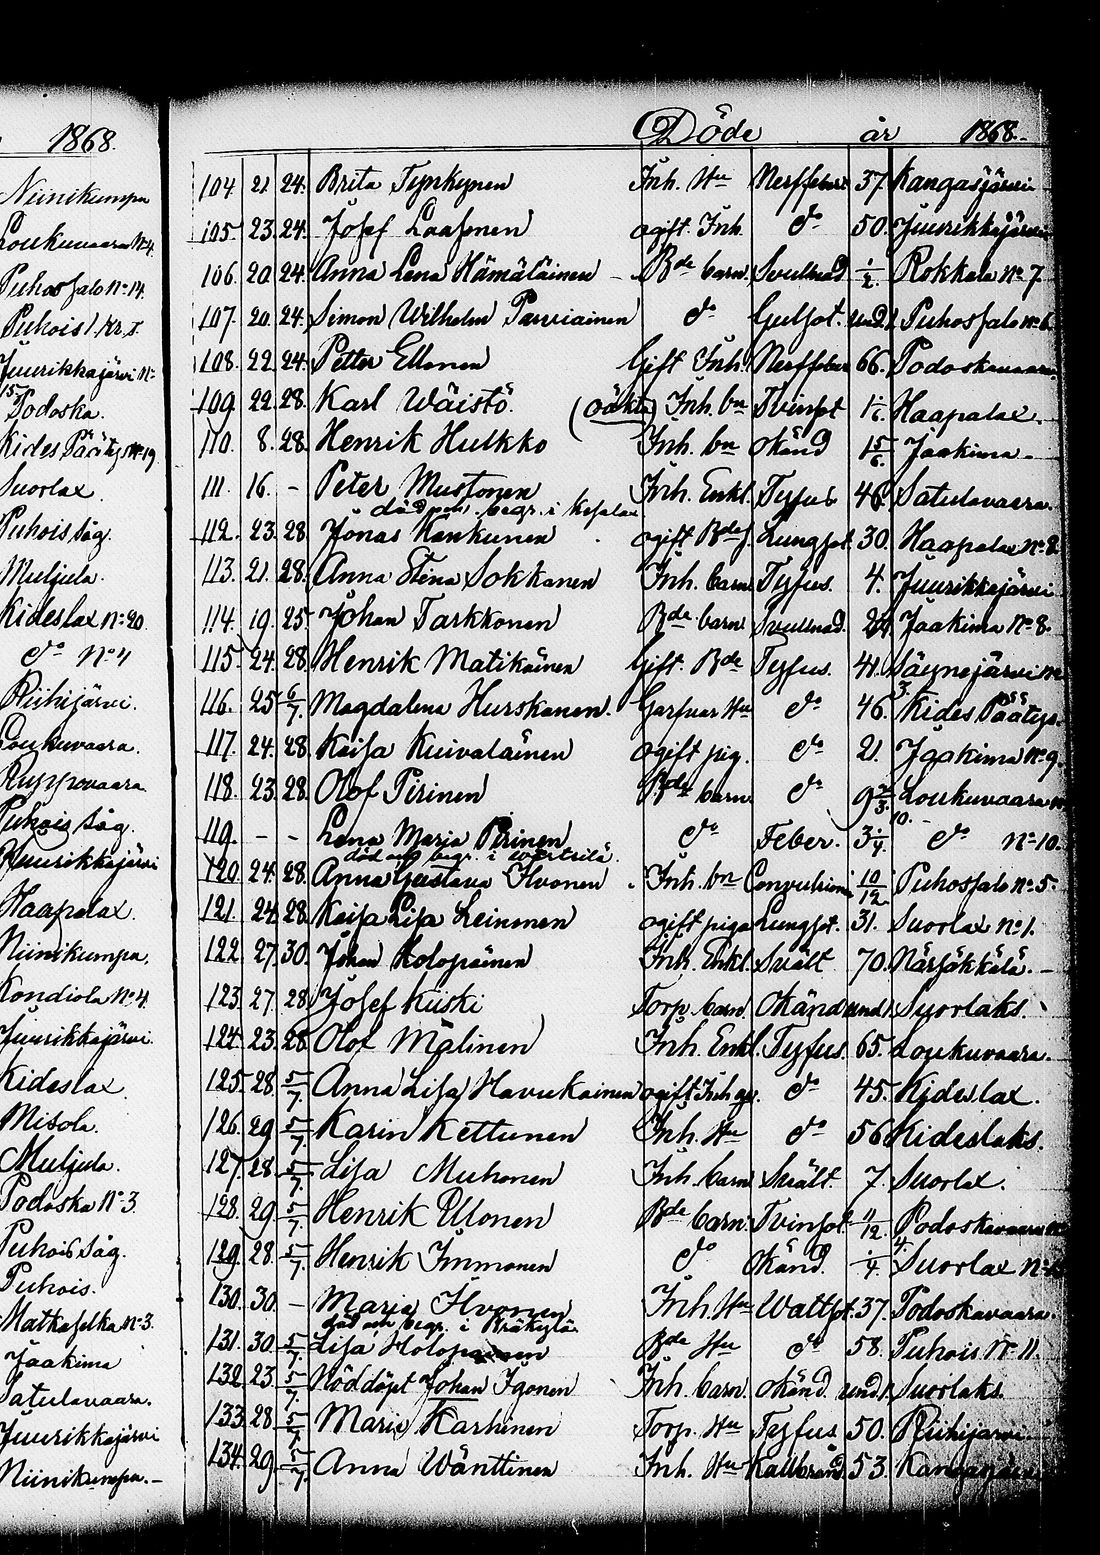 1868.
Niinikumpu
Loukuvaara No 4.
Puhossalo No 14.
Puhois
Juurikkajärvi No
15.
Podoska.
Kides Pääty No 19
Suorlax.
Puhois Såg.
Muljula.
Kideslax No 20.
do No 4
Riihijärvi.
Loukuvaara.
Ruppovaara
Puhois Såg.
Juurikkajärvi
Haapalax.
Niinikumpu.
Kondiola No 4.
Juurikkajärvi.
Kideslax
Misola.
Muljula.
Podoska No 3.
Puhois Såg.
Puhois.
Matkaselka No 3.
Jaakima
Satulavaara.
Juurikkajärvi
Niinikumpu.
Döde år 1868.
104 21 24. Brita Tynkynen Inh. Hu Nerffeber 37. Kangasjärvi
105 23. 24. Josef Laasonen ogift Inh. do 50. Juurikkajärvi
106. 20. 24. Anna Lena Hämäläinen Bde barn Svullnad 1/2. Rokkala No 7
107. 20. 24. Simon Wilhelm Parviainen do Gulsot. und. 1. Puhossalo No 6.
108. 22. 24. Petter Ellonen Gift Inh. Nerffeber 66. Podoskavaara
109. 22. 28. Karl Wäistö. (oäkta) Inh. bn Tvinsot 1 1/6. Haapalax.
110. 8. 28. Henrik Hulkko Inh. bn okänd 1 5/6. Jaakima.
111. 16. - Peter Mustonen Inh. Enkl. Tyfus 46. Satulavaara.
död och begr. i Kesalax
112. 23. 28 Jonas Kankunen ogift Bdes. Lungsot. 30. Haapalax No 8.
113. 21. 28. Anna Stina Sokkanen Inh. barn Tyfus. 4. Juurikkajärvi
114. 19. 25. Johan Tarkkonen Bde barn Svullnad. Jaakima No 8.
115. 24. 28. Henrik Matikainen Gift. Bde Tyfus. 41. Säynejärvi No
3.
116. 25 6/7. Magdalena Hurskanen. Hu do 46. Kides Pääty.
117. 24. 28. Kaisa Kuivalainen ogift pig. do 21. Jaakima No 9.
118. 23. 28. Olof Pirinen Bde barn do 9 2/3. Loukuvaara No
10.
119. - - Lena Maria Pirinen do Feber. 3 1/4. do No 10.
död och begr. i
120. 24. 28. Anna Gustava Ihvonen Inh. bn Convulsion 10/12 Puhossalo No 5.
121. 24. 28. Kaisa Lisa Leinonen ogift piga Lungsot. 31. Suorlax No 1.
122. 27. 30. Johan Holopainen Inh. Enkl. Svält 70. Närsäkkälä.
123. 27. 28 Josef Kiiski Torp. barn Okänd und 1. Suorlaks.
124. 23. 28 Olof Målinen Inh. Enkl. Tyfus. 65. Loukuvaara.
125. 28. 5/7. Anna Lisa Havukainen ogift Inh do 45. Kideslax.
126. 29. 5/7. Karin Kettunen Inh. Hu do 56 Kideslaks.
127. 28. 5/7. Lisa Muhonen Inh. barn Svält 7. Suorlax.
128. 29. 5/7. Henrik Ullonen Bde barn. Tvinsot 11/12 Podoskavaara No
4.
129. 28. 5/7. Henrik Immonen do Okänd. 1/4. Suorlax No
130. 30. - Maria Ihvonen Inh. Hu Wattsot. 37. Podoskavaara.
död och begr. i Bräkylä
131. 30. 5/7. Lisa Holopainen Bde Hu do 58. Puhois No 11.
132. 23. 5/7. Nöddöpt Johan Igonen Inh. barn okänd und 1. Suorlaks.
133. 28. 5/7. Maria Karhinen Torp. Hu Tyfus 50. Riihijarvi.
134. 29. 5/7. Anna Wänttinen Inh. Hu Kallbrand 53. Kangasjärvi